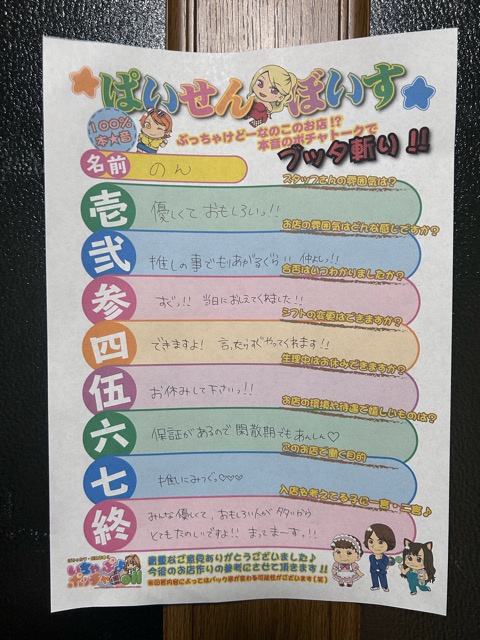 ぱいせんぼいす
100%
本★音
ぶっちゃけどーなのこのお店!?
本音のポチャトークで
ブッタ斬り!!
名前 のん
スタッフさんの雰囲気は?
壱 優しくておもしろいっ!!
お店の雰囲気はどんな感じですか?
弐 推しの事でもりあがるぐらい 仲よしっ!!
合否はいつわかりましたか?
参 すぐっ!! 当日におしえてくれました!!
シフトの変更はできますか?
四 できますよ! 言ったらすぐやってくれます!!
生理中はお休みできますか?
伍 お休みして下さいっ!!
お店の環境や待遇で嬉しいものは?
六 保証があるので閑散期でもあんしん♡
このお店で働く目的
七 推しにみつぐっ♡♡♡
入店を考えてる子に一言・二言♪
終 みんな優しくて、おもしろい人が多いから
とてもたのしいですよ!! まってまーすっ!!
いちゃぷよ
ポッチャ
貴重なご意見ありがとうございました♪
今後のお店作りの参考にさせて頂きます!!
※回答内容によってはバック率が変わる可能性がございます(笑)